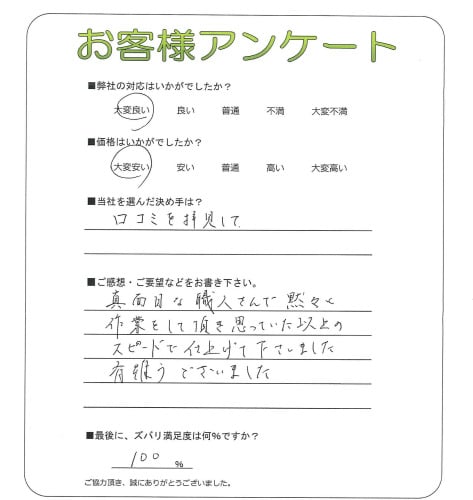 お客様アンケート
■弊社の対応はいかがでしたか？
大変良い 良い 普通 不満 大変不満
■価格はいかがでしたか？
大変安い 安い 普通 高い 大変高い
■当社を選んだ決め手は？
口コミを拝見して
■ご感想・ご要望などをお書き下さい。
真面目な職人さんで黙々と
作業をして頂き思っていた以上の
スピードで仕上げて下さいました
有難うございました
■最後に、ズバリ満足度は何%ですか？
100 %
ご協力頂き、誠にありがとうございました。